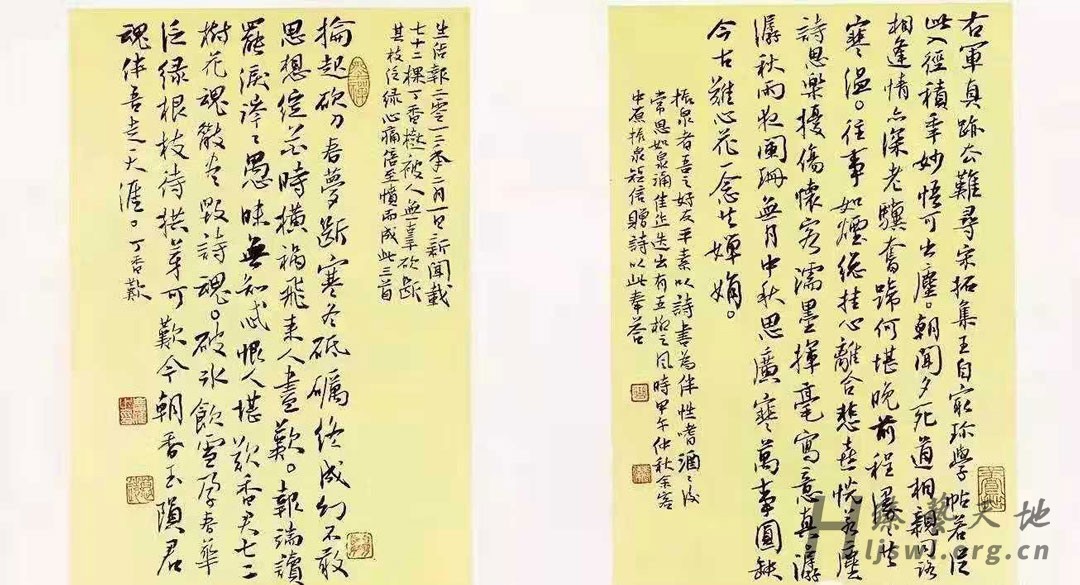 右軍真跡公難尋宋拓集王自家珍學帖若從
此入徑積年妙悟可出塵。朝聞夕死道相親同
相逢情亦深老驥奮蹄何堪晚前程
寒溫。往事如煙總挂心離合悲喜恍若塵
詩思樂擾傷懷客濡墨揮毫寫意真瀟
瀟秋雨夜闌珊無月中秋思廣寒萬事圓缺
今古難心花一念共嬋娟。
振泉者吾之好友平素以詩書為伴性嗜酒之後
常思如泉涌佳作迭出有五柳之風時甲午仲秋余客
中原振泉短信贈詩以此奉答
生活報二零一三年二月一日新聞載
七十二棵丁香樹被人無辜砍斷
其枝泛綠心痛倍至憤而成此三首
掄起砍刀春夢斷寒冬砥礪終成幻不敢
思想綻花時橫禍飛來人盡歎。報端讀
罷淚潸々愚昧無知忒恨人堪欺香君七二
樹花魂散盡毀詩魂。破冰飲雪孕春華
泛綠根枝待拱芽可歎今朝香玉隕君
魂伴吾走天涯。丁香歎
臻藝天地
hljswj.org.cn